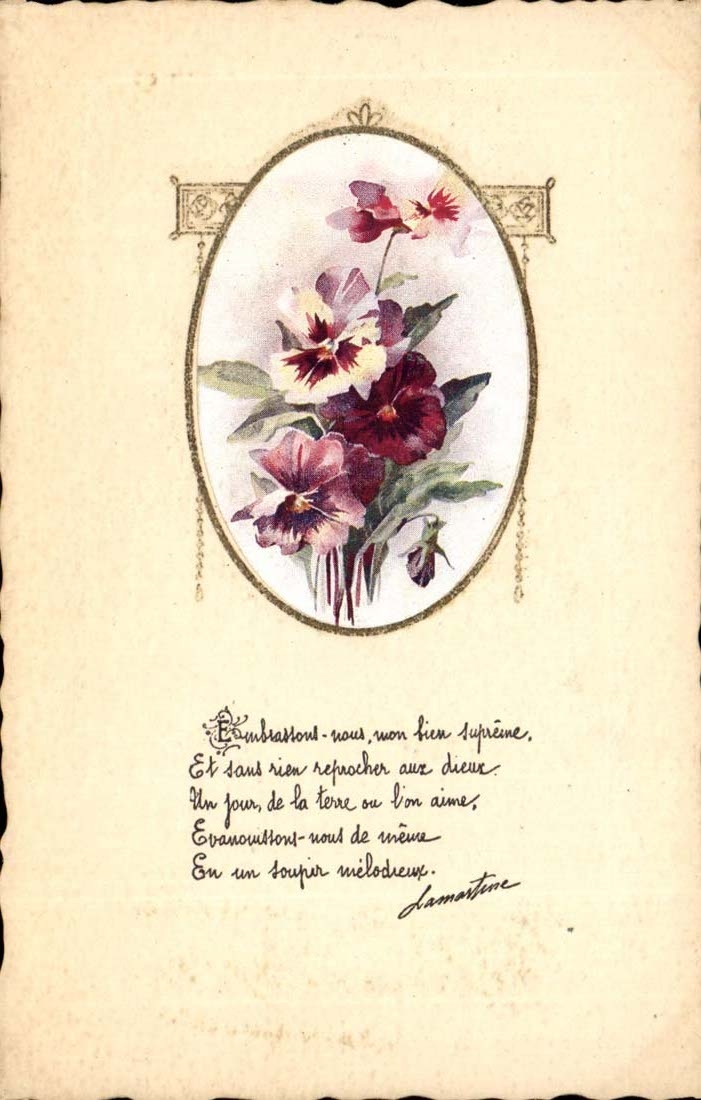 Embrassons-nous, mon bien suprême,
Et sans rien reprocher aux dieux.
Un jour, de la terre ou l'on aime,
Evanouissons-nous de même
En un soupir mélodieux.
Lamartine